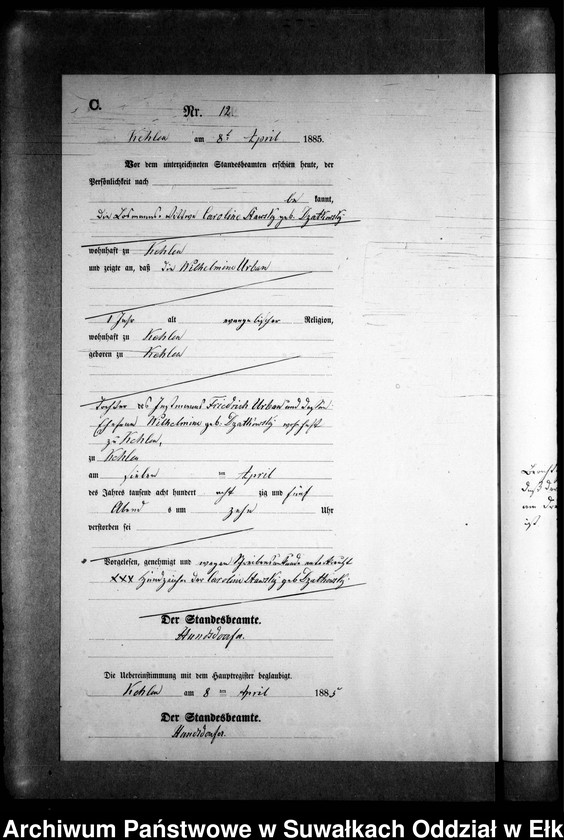 C.
Nr. 12
Kehlen am 8t April 1885.
Vor dem unterzeichneten Standesbeamten erschien heute, der
Persönlichkeit nach
be kannt,
die Losmanns-Wittwe Caroline geb. Dzatkowsky
wohnhaft zu Kehlen
und zeigte an, daß die Wilhelmine Urban
1 Jahr alt evangelischer Religion,
wohnhaft zu Kehlen
geboren zu Kehlen
Tochter des Instmanns Friedrich Urban und dessen
Ehefrau Wilhelmine geb. Dzatkowsky wohnhaft
zu Kehlen,
zu Kehlen
am sieben ten April
des Jahres tausend acht hundert acht zig und fünf
Abend s um zehn Uhr
verstorben sei
Vorgelesen, genehmigt und wegen Schreibensunkunde unterkreuzt
XXX Handzeichen der Caroline geb Dzatkowsky.
Der Standesbeamte.
Die Uebereinstimmung mit dem Hauptregister beglaubigt.
Kehlen am 8 ten April 1885
Der Standesbeamte.
Archiwum Państwowe w Suwałkach Oddział w Ełk